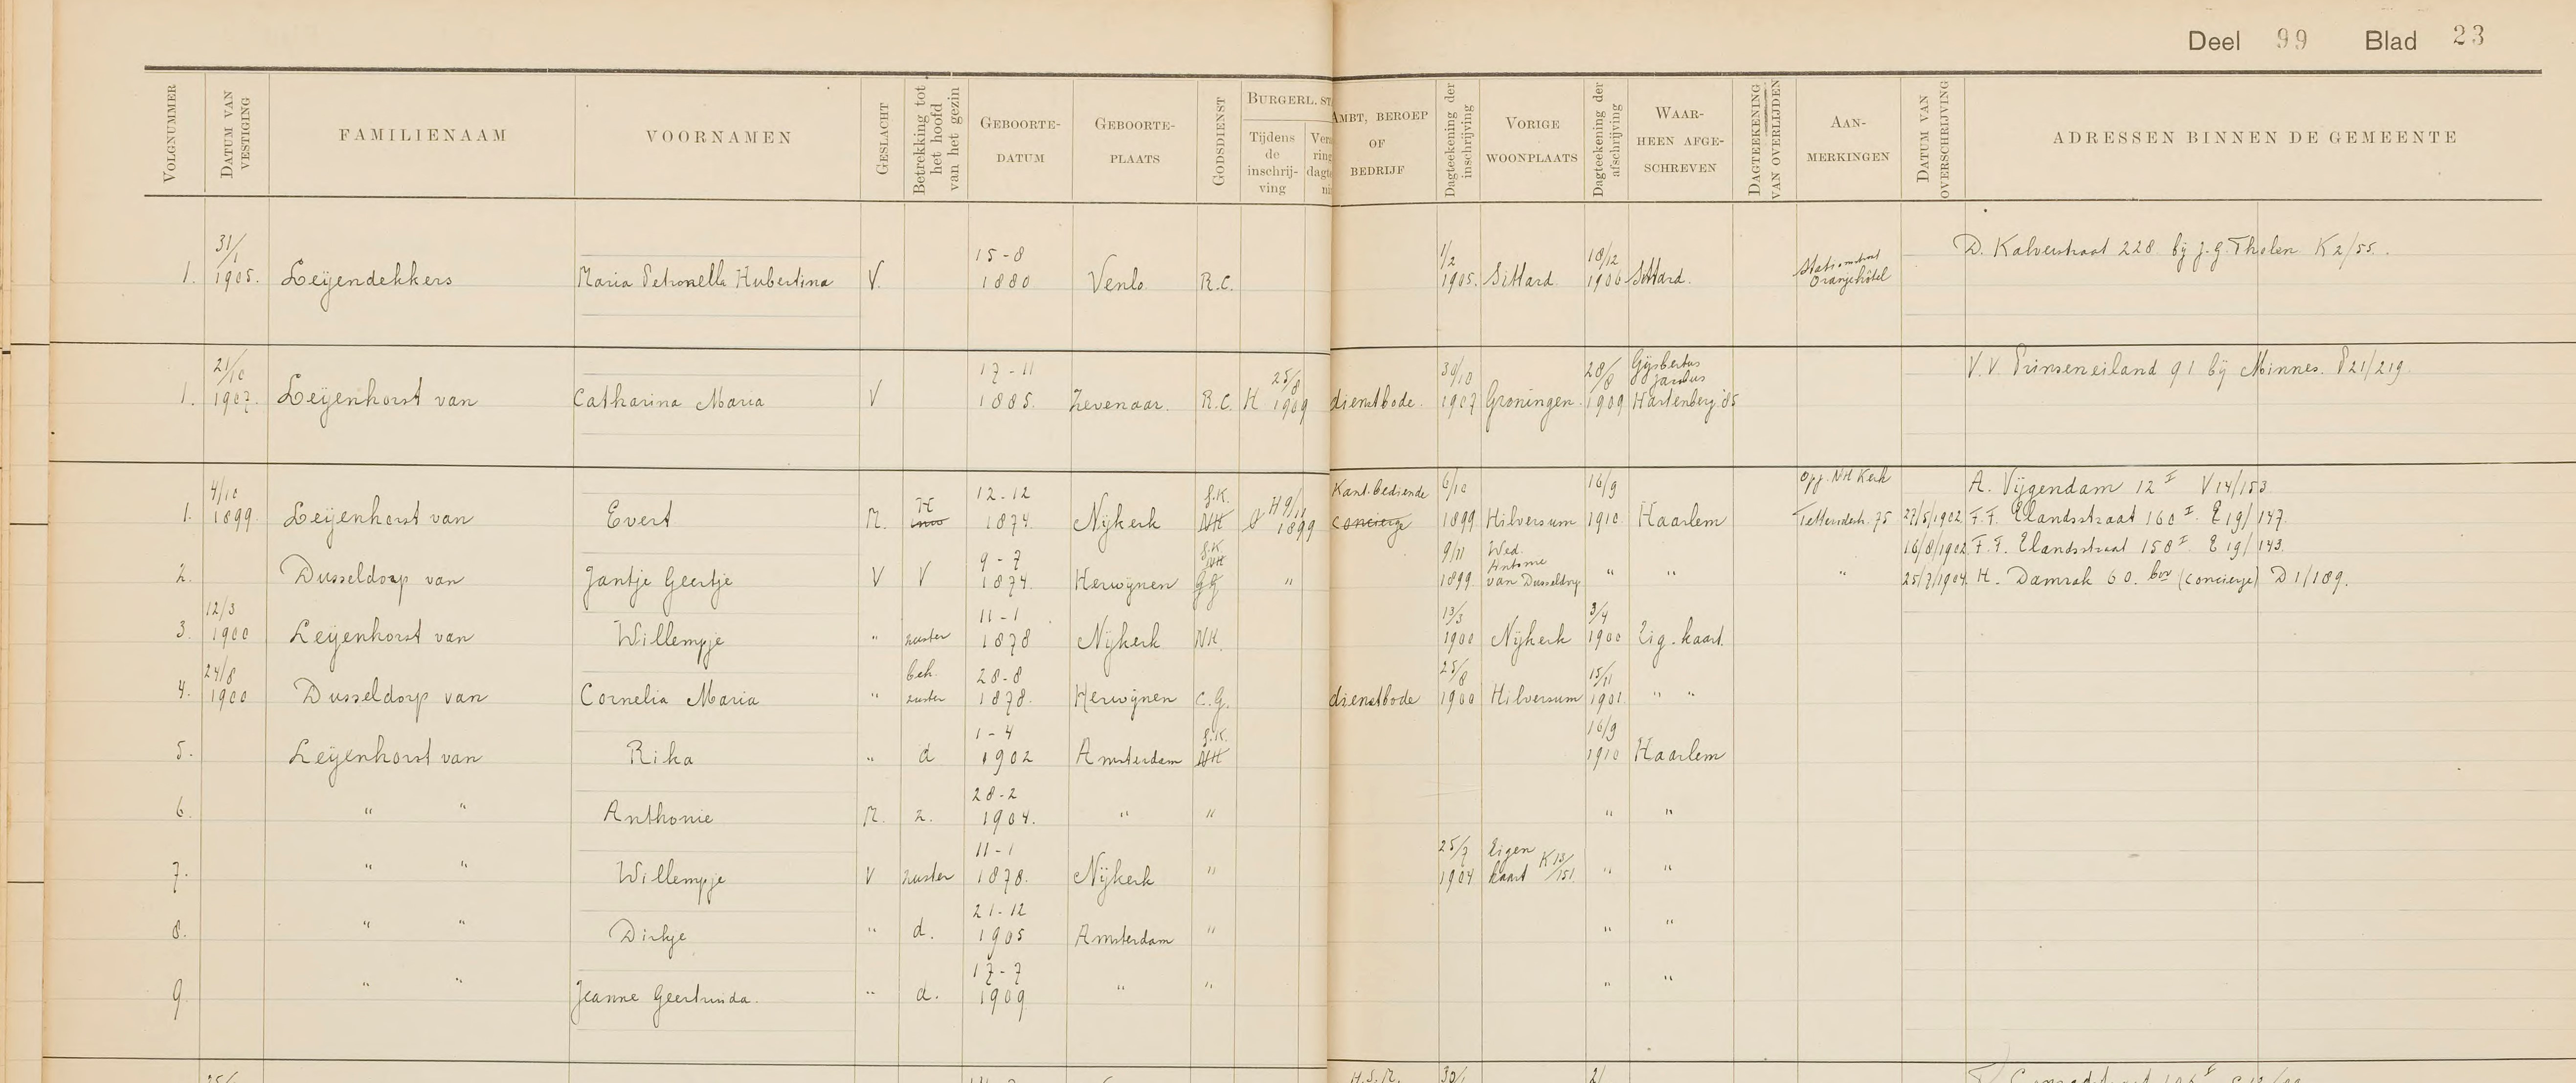 Deel 99 Blad 23
VOLGNUMMER DATUM VAN VESTIGING FAMILIENAAM VOORNAMEN GESLACHT Betrekking tot het hoofd van het gezin GEBOORTE-DATUM GEBOORTE-PLAATS GODSDIENST BURGERL. ST. Tijdens de inschrij-ving AMBT, BEROEP OF BEDRIJF Dagteekening der inschrijving VORIGE WOONPLAATS Dagteekening der afschrijving WAAR-HEEN AFGE-SCHREVEN DAGTEEKENING VAN OVERLIJDEN AAN-MERKINGEN DATUM VAN OVERSCHRIJVING ADRESSEN BINNEN DE GEMEENTE
1. 31/1 1905. Leijendekkers Maria Petronella Hubertina V. 15-8 1880 Venlo R.C. 1/2 1905. Sittard 18/12 1906 Sittard. Oranjehôtel D. Kalverstraat 228 bij J.G. Tholen K2/55.
1. 21/10 1907. Leijenhorst van Catharina Maria V 17-11 1885. Zevenaar. R.C. H 25/8 1909 dienstbode. 30/10 1907 Groningen. 28/8 1909 Gijsbertus Jacobus Hartenberg '85 V.V Prinseneiland 91 bij Minnes. P21/219
1. 4/10 1899. Leijenhorst van Evert M. H 12-12 1874. Nijkerk g.K. NH H 9/11 1899 Kant. bediende concierge 6/10 1899 Hilversum 16/9 1910. Haarlem Opg. NH Kerk A. Vijgendam 12 I V14/153
27/5/1902 F.F. Elandsstraat 160 I. E19/147.
16/8/1902 F.F. Elandsstraat 158 I. E19/143.
2. Dusseldorp van Jantje Geertje V V 9-7 1874. Herwijnen g.K. NH GG " 9/11 1899 Wed. Antonie van Dusseldorp " " " 25/7/1904. H. Damrak 60. bov (concierge) D1/189.
3. 12/3 1900 Leijenhorst van Willempje " zuster 11-1 1878 Nijkerk NH. 13/3 1900 Nijkerk 3/4 1900 Eig. kaart.
4. 24/8 1900 Dusseldorp van Cornelia Maria " beh. zuster 28-8 1878. Herwijnen C.G. dienstbode 25/8 1900 Hilversum 15/11 1901 " "
5. Leijenhorst van Rika " d 1-4 1902 Amsterdam g.K. NH 16/9 1910 Haarlem
6. " " Anthonie M. z. 28-2 1904. " " " "
7. " " Willempje V zuster 11-1 1878. Nijkerk " 25/7 1904 Eigen kaart K13/151 " "
8. " " Dirkje " d. 21-12 1905 Amsterdam " " "
9 " " Jeanne Geertruida. " d. 17-7 1909 " " " "